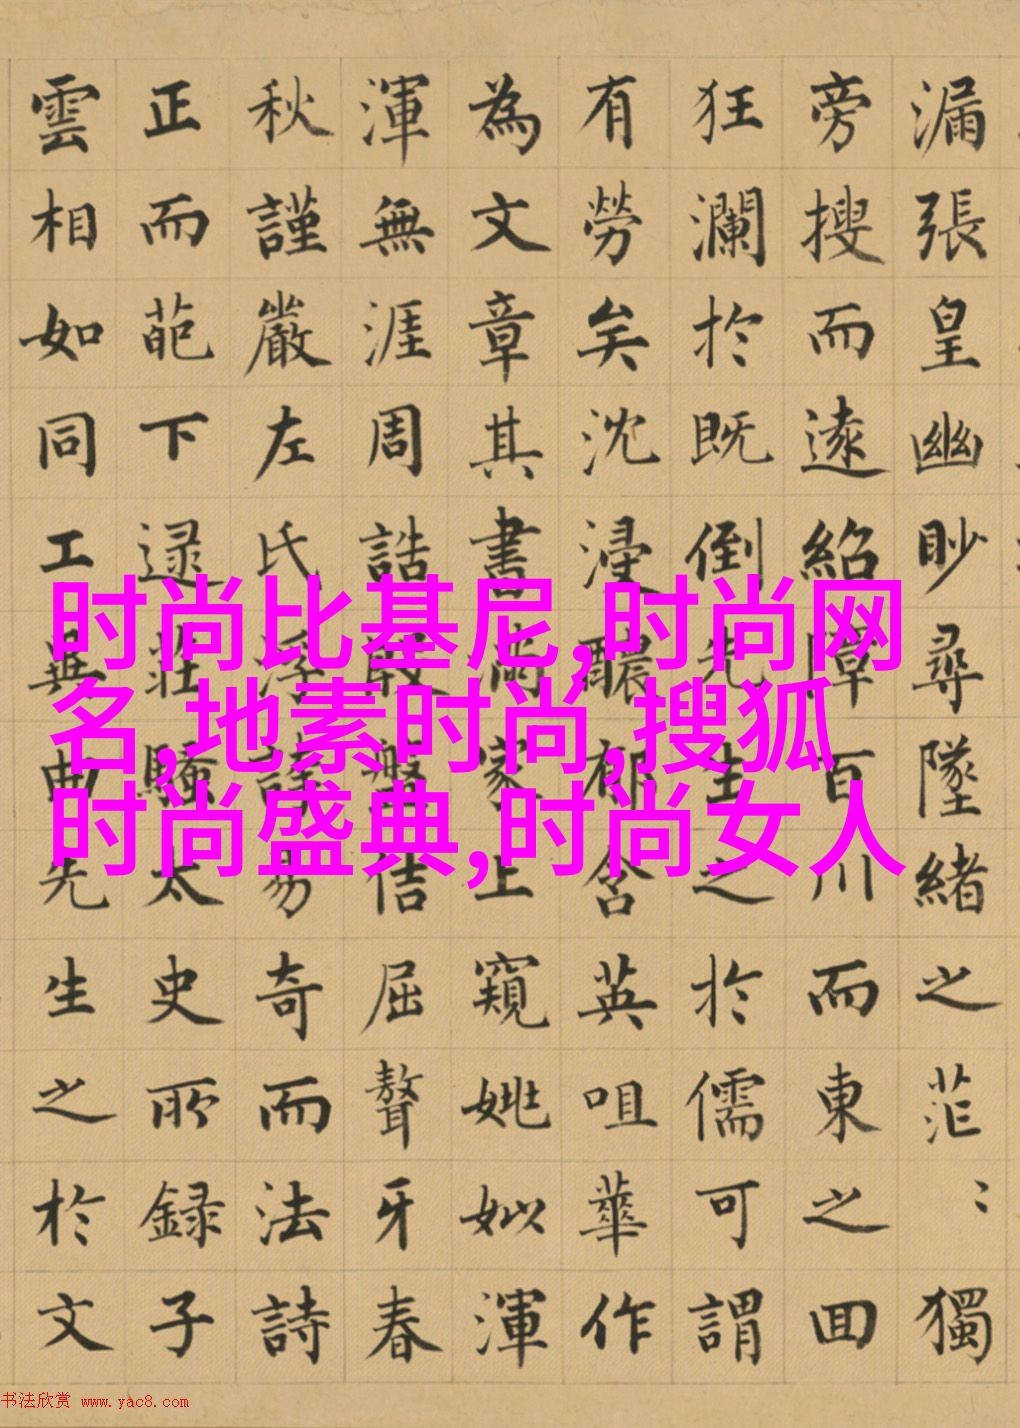 漏張皇幽眇尋墜緒之茫〻獨
旁搜而遠紹障百川而東之回
狂瀾於既倒先生之於儒可謂
有勞矣沈浸醲郁含英咀華作
為文章其書滿家上窺姚姒渾
渾無涯周誥殷盤佶屈聱牙春
秋謹嚴左氏浮誇易奇而法詩
正而葩下逮莊騷太史所録子
雲相如同工異曲先生之於文
时尚比基尼,时尚网
名,地素时尚,搜狐
时尚盛典,时尚女人
书法欣赏 www.yac8.com